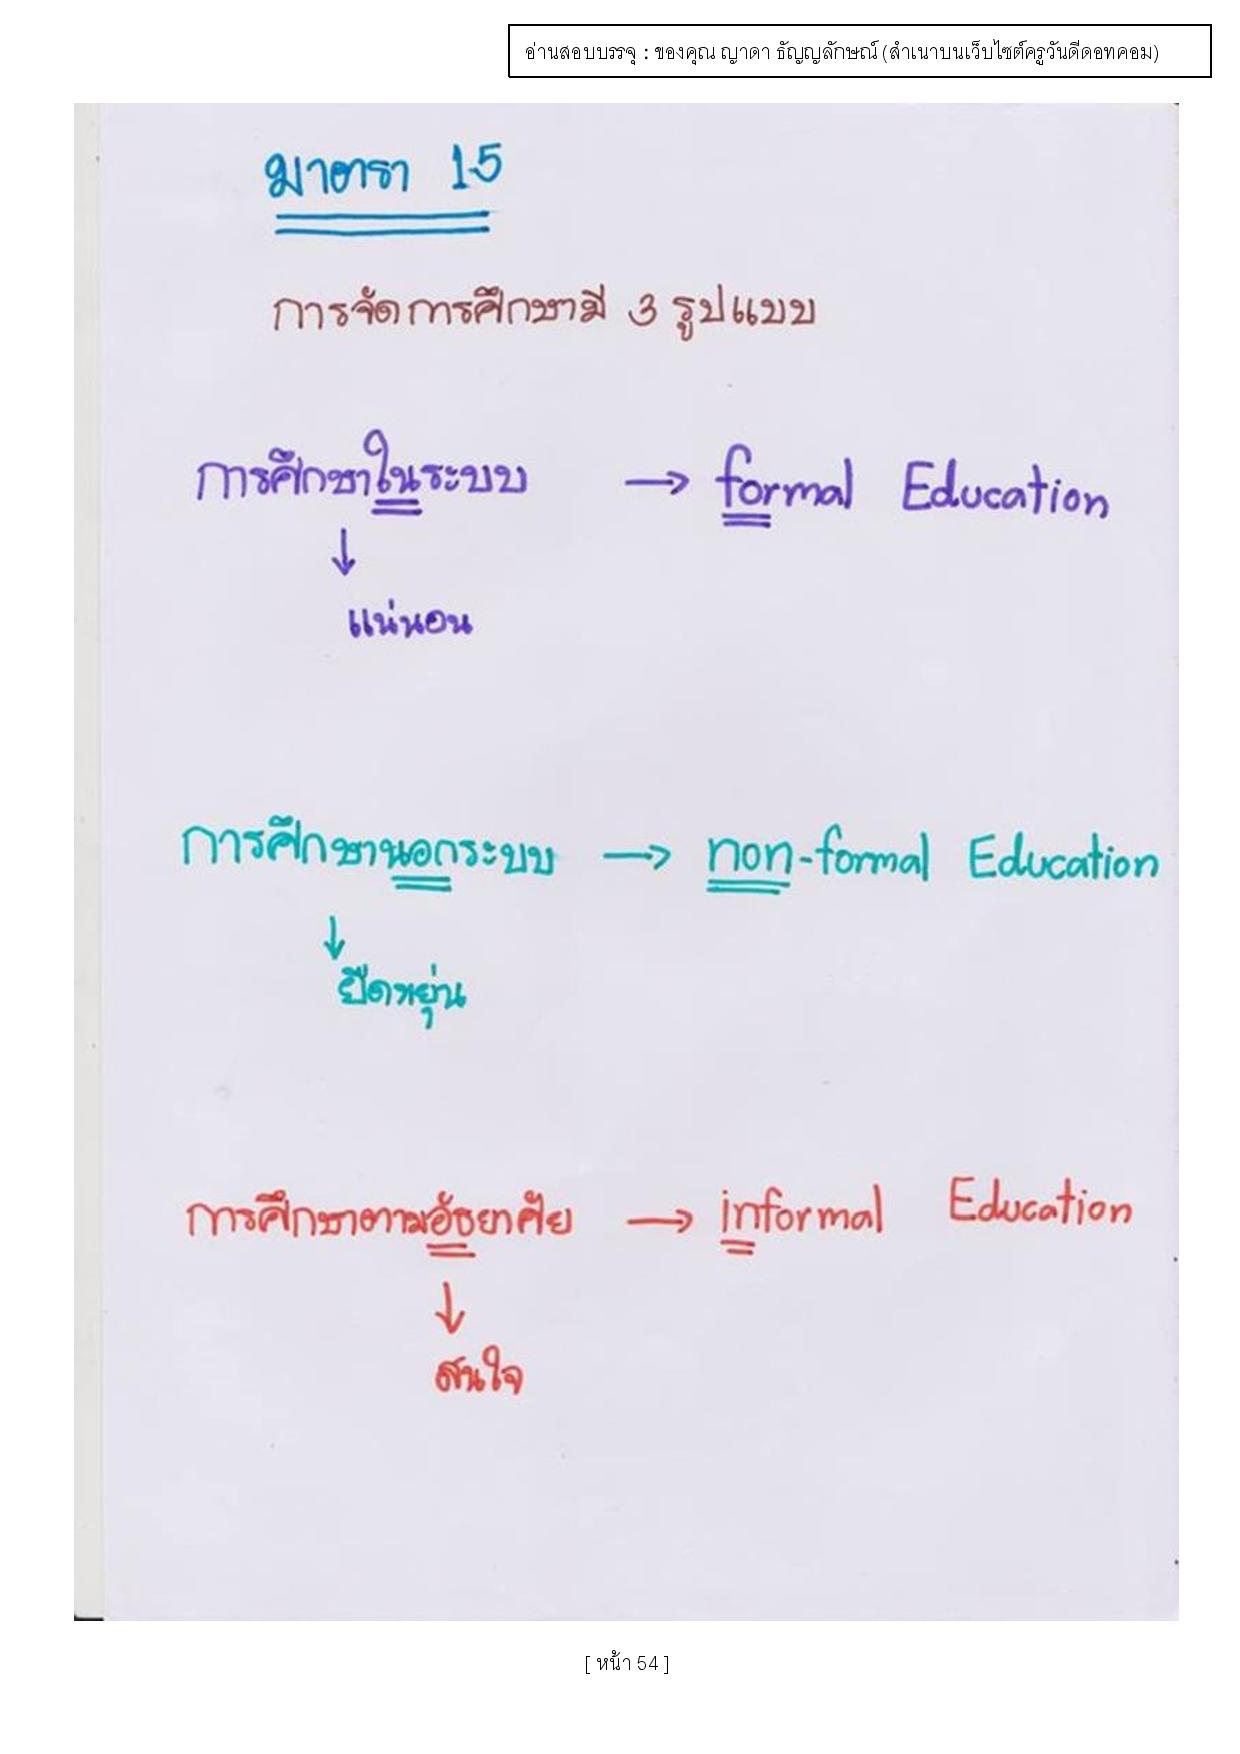 อ่านสอบบรรจุ : ของคุณ ญาดา ธัญญลักษณ์ (สำเนาบนเว็บไซต์ครูวันดีดอทคอม)
มาตรา 15
การจัดการศึกษามี 3 รูปแบบ
การศึกษาในระบบ → formal Education
↓
แน่นอน
การศึกษานอกระบบ → non-formal Education
↓
ยืดหยุ่น
การศึกษาตามอัธยาศัย → informal Education
↓
สนใจ
[ หน้า 54 ]